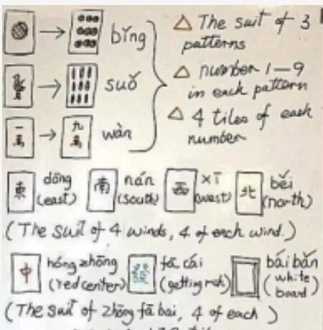 bǐng
suǒ
一萬 → 九萬 wàn
△ The suit of 3 patterns
△ number 1-9 in each pattern
△ 4 tiles of each number
東 dōng (east) 南 nán (south) 西 xī (west) 北 běi (north)
(The suit of 4 winds, 4 of each wind.)
中 hóng zhōng (red center) 發 fā cái (getting rich) bái bǎn (white board)
(The suit of zhōng fā bai, 4 of each)